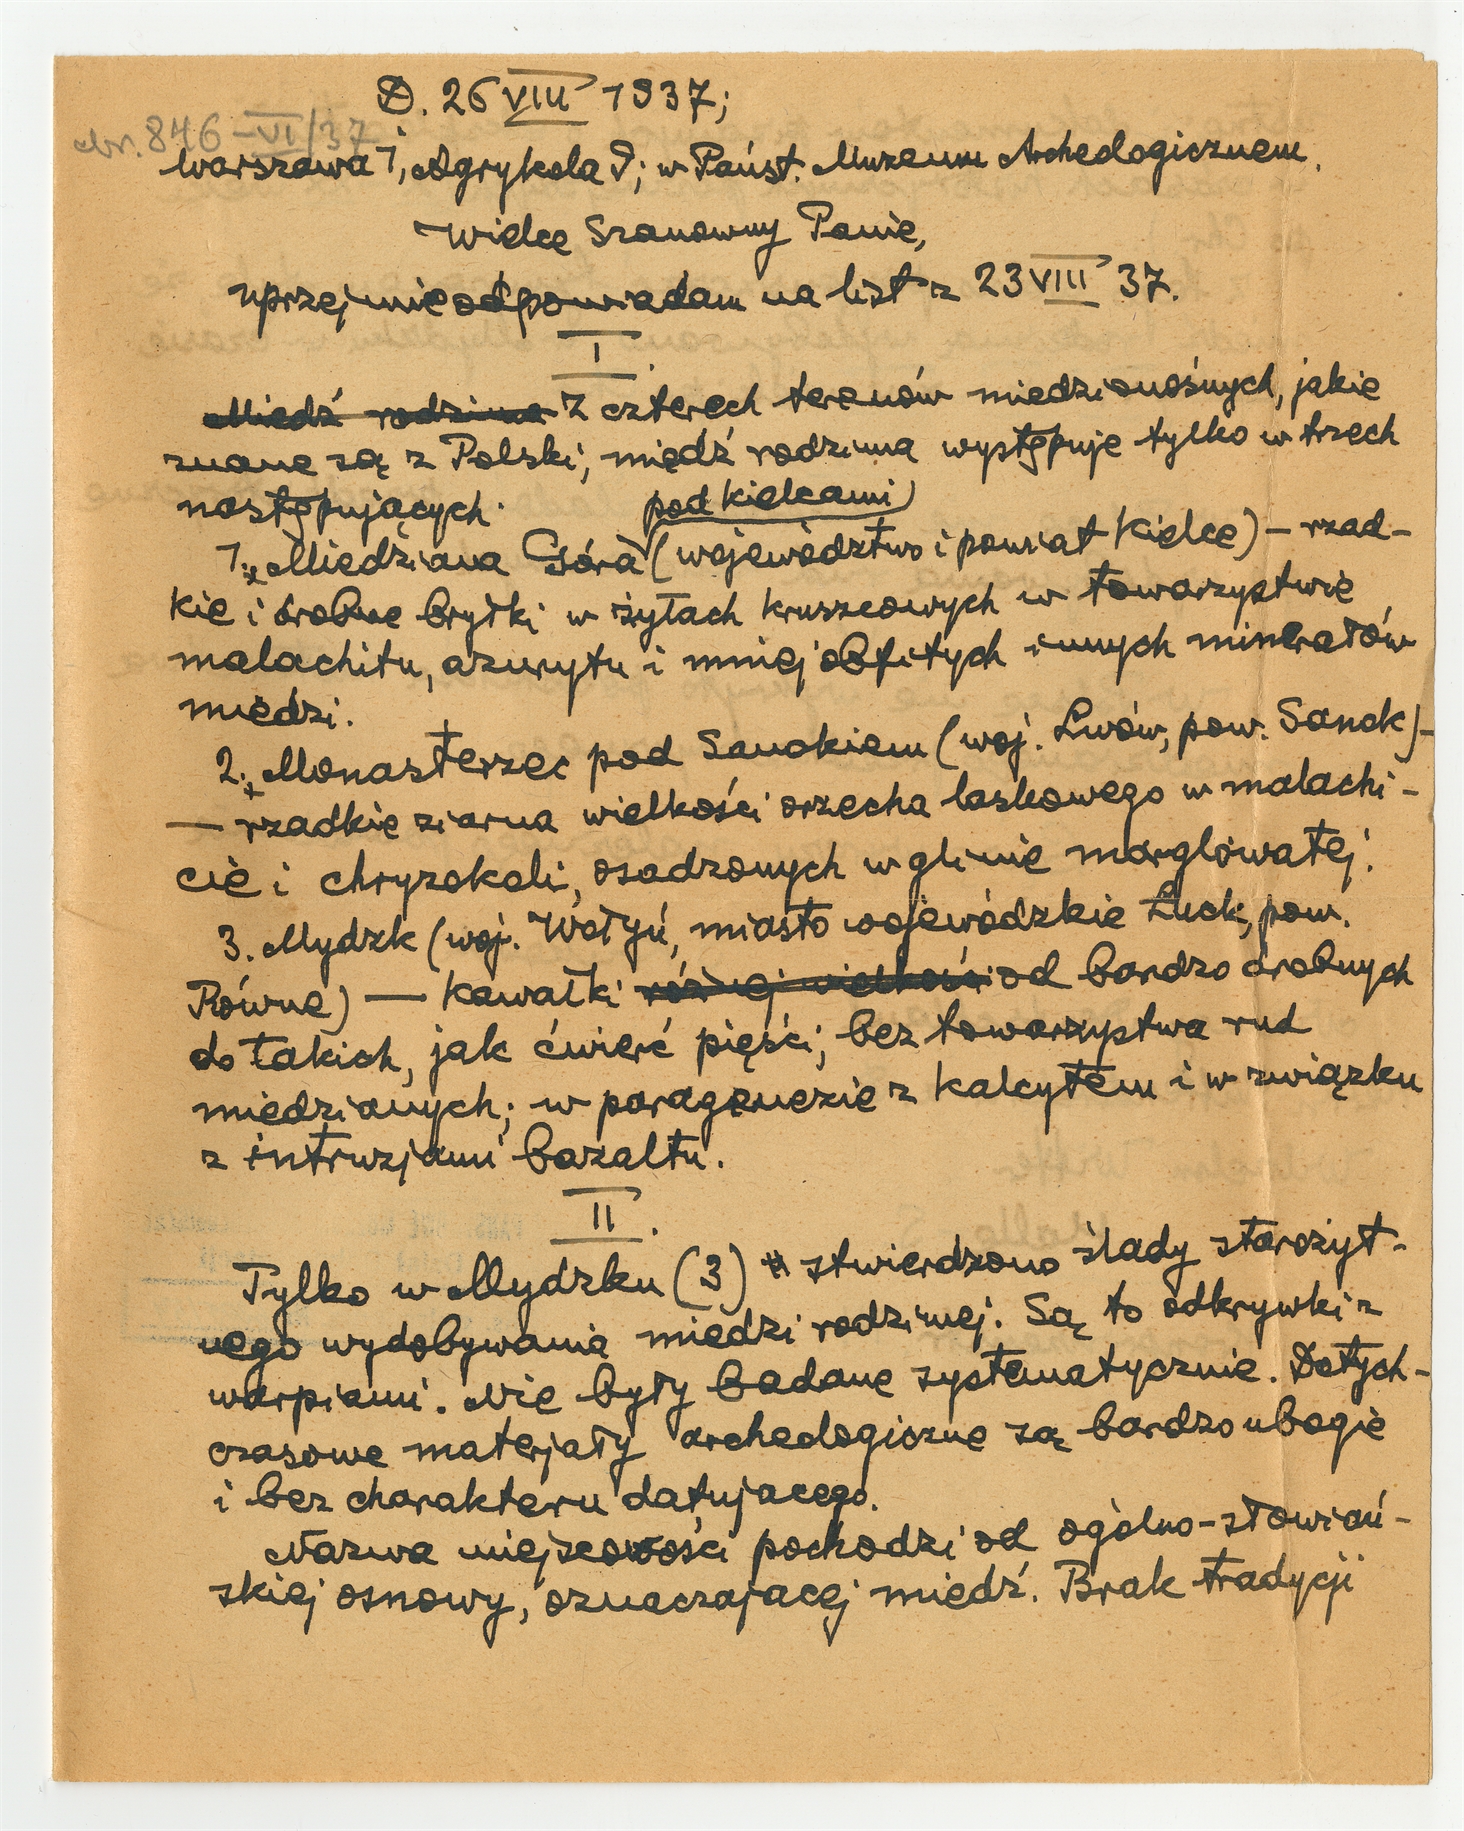 D. 26 VIII 1937;
Nr. 846-VI/37
Warszawa 1, Agrykola 9; w Państ. Muzeum Archeologicznem.
Wielce Szanowny Panie,
uprzejmie odpowiadam na list z 23 VIII 37.
I.
Miedź rodzima Z czterech terenów miedzionośnych, jakie
znane są z Polski, miedź rodzima występuje tylko w trzech
następujących.
pod Kielcami
1. Miedziana Góra (województwo i powiat Kielce) — rzad-
kie i drobne bryłki w żyłach kruszcowych w towarzystwie
malachitu, azurytu i mniej obfitych innych minerałów
miedzi.
2. Monasterzec pod Sanokiem (woj. Lwów, pow. Sanok) —
— rzadkie ziarna wielkości orzecha laskowego w malachi-
cie i chryzokoli, osadzonych w glinie marglowatej.
3. Mydzk (woj. Wołyń, miasto wojewódzkie Łuck, pow.
Równe) — kawałki różnej wielkości od bardzo drobnych
do takich, jak ćwierć pięści; bez towarzystwa rud
miedzianych; w paragenezie z kalcytem i w związku
z intruzjami bazaltu.
II.
Tylko w Mydzku (3) stwierdzono ślady starożyt-
nego wydobywania miedzi rodzimej. Są to odkrywki z
warpiami. Nie były badane systematycznie. Dotych-
czasowe materjały archeologiczne są bardzo ubogie
i bez charakteru datującego.
Nazwa miejscowości pochodzi od ogólno-słowiań-
skiej osnowy, oznaczającej miedź. Brak tradycji